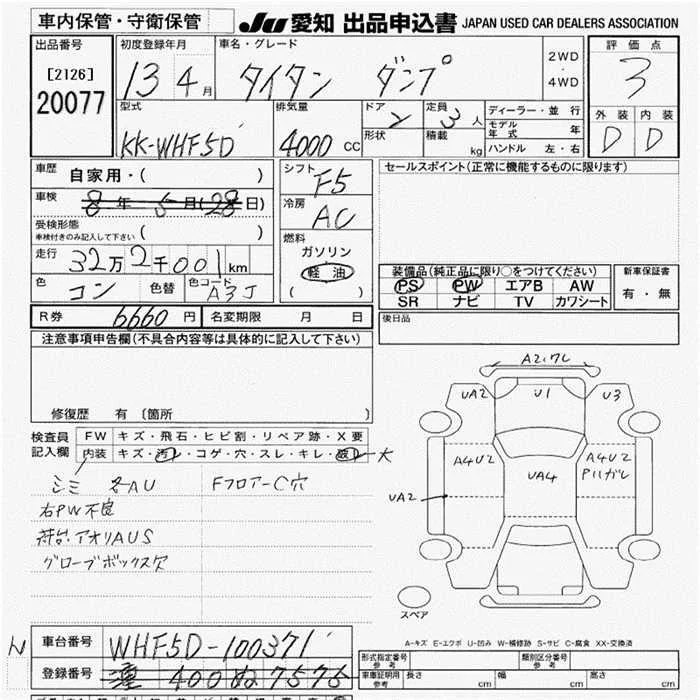 車内保管・守衛保管
JU 愛知 出品申込書 JAPAN USED CAR DEALERS ASSOCIATION
出品番号
[2126]
20077
初度登録年月
13 4月
車名・グレード
タイタン ダンプ
2WD
・
4WD
評価点
3
外装 内装
D D
型式
KK-WHF5D
排気量
4000 cc
ドア
2
形状
定員
3人
積載 kg
ディーラー・並行
モデル年式 年
ハンドル 左・右
車歴
自家用・( )
車検
8年 5月(28日)
受検形態
車検付きのみ記入して下さい ( )
走行
32万2千001km
色
コン
色替
色コード
A3J
シフト
F5
冷房
AC
燃料
ガソリン
軽油
( )
セールスポイント(正常に機能するものに限ります)
装備品(純正品に限り○をつけてください)
PS PW エアB AW
SR ナビ TV カワシート
新車保証書
有・無
R券 6660円 名変期限 月 日
後日品
注意事項申告欄(不具合内容等は具体的に記入して下さい)
修復歴 有 〔箇所 〕
検査員記入欄
FW キズ・飛石・ヒビ割・リペア跡・X要
内装 キズ・汚レ・コゲ・穴・スレ・キレ・破レ 大
シミ 各AU Fフロアー C穴
右PW不良
荷台.アオリAUS
グローブボックス穴
A2ワレ
UA2 U1 U3
A4U2 UA4 A4U2
P11ガレ
UA2
スペア
A-キズ E-エクボ U-凹み W-補修跡 S-サビ C-腐食 XX-交換済
車台番号
WHF5D-100371
登録番号
400ぬ7576
形式指定番号 参考
類別区分番号 参考
車庫証明用 参考 長さ cm 幅 cm 高さ cm